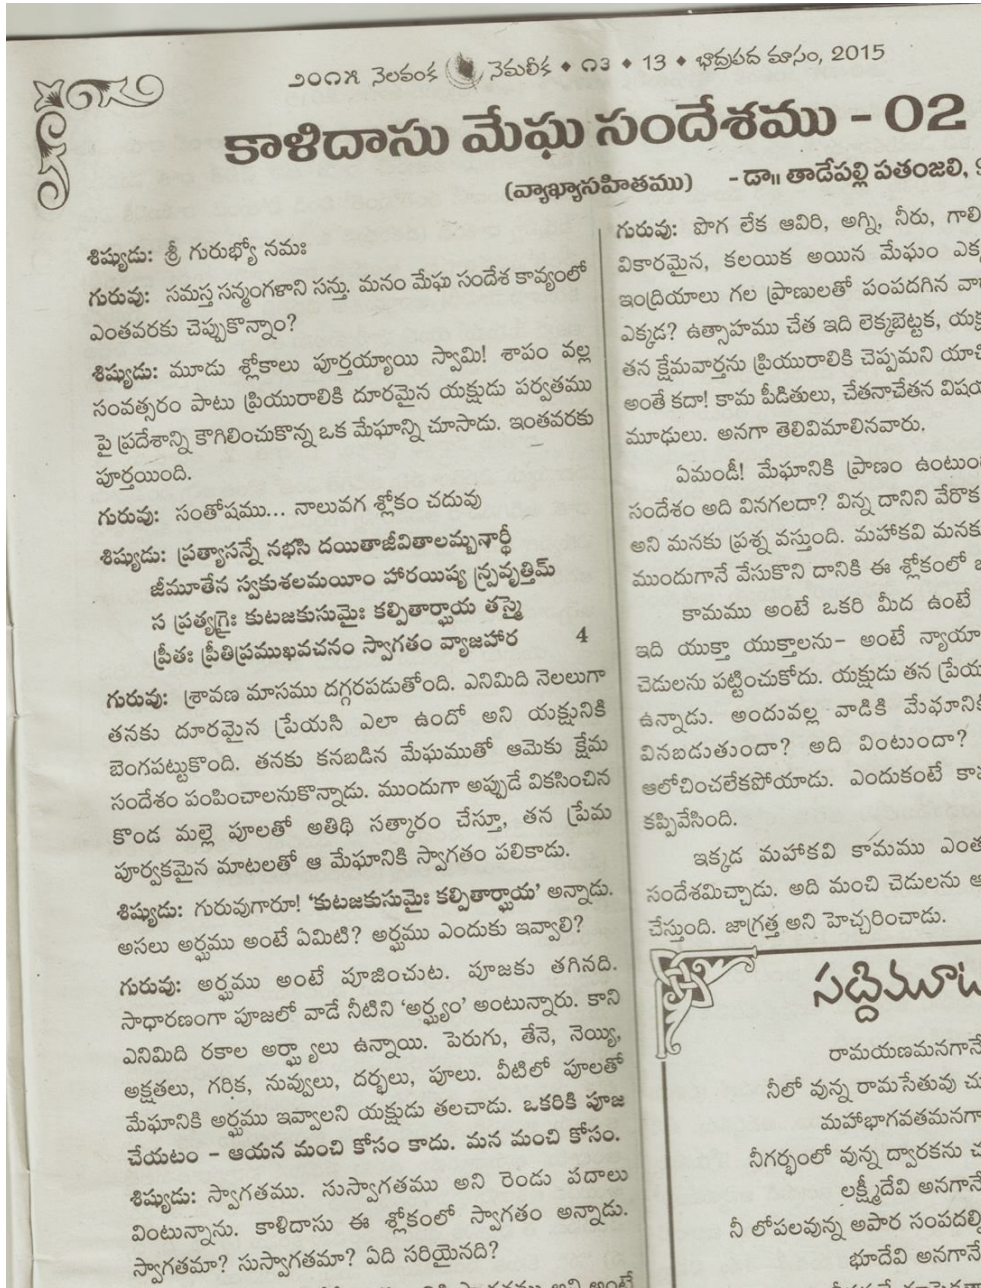 ౨౦౧౫ నెలవంక నెమలీక ♦ ౧౩ ♦ 13 ♦ భాద్రపద మాసం, 2015
కాళిదాసు మేఘ సందేశము - 02
(వ్యాఖ్యాసహితము) - డా॥ తాడేపల్లి పతంజలి,
శిష్యుడు: శ్రీ గురుభ్యో నమః
గురువు: సమస్త సన్మంగళాని సన్తు. మనం మేఘ సందేశ కావ్యంలో
ఎంతవరకు చెప్పుకొన్నాం?
శిష్యుడు: మూడు శ్లోకాలు పూర్తయ్యాయి స్వామి! శాపం వల్ల
సంవత్సరం పాటు ప్రియురాలికి దూరమైన యక్షుడు పర్వతము
పై ప్రదేశాన్ని కౌగిలించుకొన్న ఒక మేఘాన్ని చూసాడు. ఇంతవరకు
పూర్తయింది.
గురువు: సంతోషము... నాలువగ శ్లోకం చదువు
శిష్యుడు: ప్రత్యాసన్నే నభసి దయితాజీవితాలమ్బనార్థీ
జీమూతేన స్వకుశలమయీం హారయిష్య న్ప్రవృత్తిమ్
స ప్రత్యగ్రైః కుటజకుసుమైః కల్పితార్ఘాయ తస్మై
ప్రీతః ప్రీతిప్రముఖవచనం స్వాగతం వ్యాజహార 4
గురువు: శ్రావణ మాసము దగ్గరపడుతోంది. ఎనిమిది నెలలుగా
తనకు దూరమైన ప్రేయసి ఎలా ఉందో అని యక్షునికి
బెంగపట్టుకొంది. తనకు కనబడిన మేఘముతో ఆమెకు క్షేమ
సందేశం పంపించాలనుకొన్నాడు. ముందుగా అప్పుడే వికసించిన
కొండ మల్లె పూలతో అతిథి సత్కారం చేస్తూ, తన ప్రేమ
పూర్వకమైన మాటలతో ఆ మేఘానికి స్వాగతం పలికాడు.
శిష్యుడు: గురువుగారూ! 'కుటజకుసుమైః కల్పితార్ఘాయ' అన్నాడు.
అసలు అర్ఘము అంటే ఏమిటి? అర్ఘము ఎందుకు ఇవ్వాలి?
గురువు: అర్ఘము అంటే పూజించుట. పూజకు తగినది.
సాధారణంగా పూజలో వాడే నీటిని 'అర్ఘ్యం' అంటున్నారు. కాని
ఎనిమిది రకాల అర్ఘ్యాలు ఉన్నాయి. పెరుగు, తేనె, నెయ్యి,
అక్షతలు, గరిక, నువ్వులు, దర్భలు, పూలు. వీటిలో పూలతో
మేఘానికి అర్ఘము ఇవ్వాలని యక్షుడు తలచాడు. ఒకరికి పూజ
చేయటం - ఆయన మంచి కోసం కాదు. మన మంచి కోసం.
శిష్యుడు: స్వాగతము. సుస్వాగతము అని రెండు పదాలు
వింటున్నాను. కాళిదాసు ఈ శ్లోకంలో స్వాగతం అన్నాడు.
స్వాగతమా? సుస్వాగతమా? ఏది సరియైనది?
గురువు: పొగ లేక ఆవిరి, అగ్ని, నీరు, గాలి
వికారమైన, కలయిక అయిన మేఘం
ఇంద్రియాలు గల ప్రాణులతో పంపదగిన
ఎక్కడ? ఉత్సాహము చేత ఇది లెక్కబెట్టక,
తన క్షేమవార్తను ప్రియురాలికి చెప్పమని
అంతే కదా! కామ పీడితులు, చేతనాచేతన
మూఢులు. అనగా తెలివిమాలినవారు.
ఏమండీ! మేఘానికి ప్రాణం
సందేశం అది వినగలదా? విన్న దానిని
అని మనకు ప్రశ్న వస్తుంది. మహాకవి
ముందుగానే వేసుకొని దానికి ఈ శ్లోకంలో
కామము అంటే ఒకరి మీద ఉంటే
ఇది యుక్తా యుక్తాలను- అంటే
చెడులను పట్టించుకోదు. యక్షుడు తన
ఉన్నాడు. అందువల్ల వాడికి
వినబడుతుందా? అది వింటుందా?
ఆలోచించలేకపోయాడు. ఎందుకంటే
కప్పివేసింది.
ఇక్కడ మహాకవి కామము
సందేశమిచ్చాడు. అది మంచి చెడులను
చేస్తుంది. జాగ్రత్త అని హెచ్చరించాడు.
రామయణమనగానే
నీలో వున్న రామసేతువు
మహాభాగవతమనగా
నీగర్భంలో వున్న ద్వారకను
లక్ష్మీదేవి అనగానే
నీ లోపలవున్న అపార
భూదేవి అనగానే